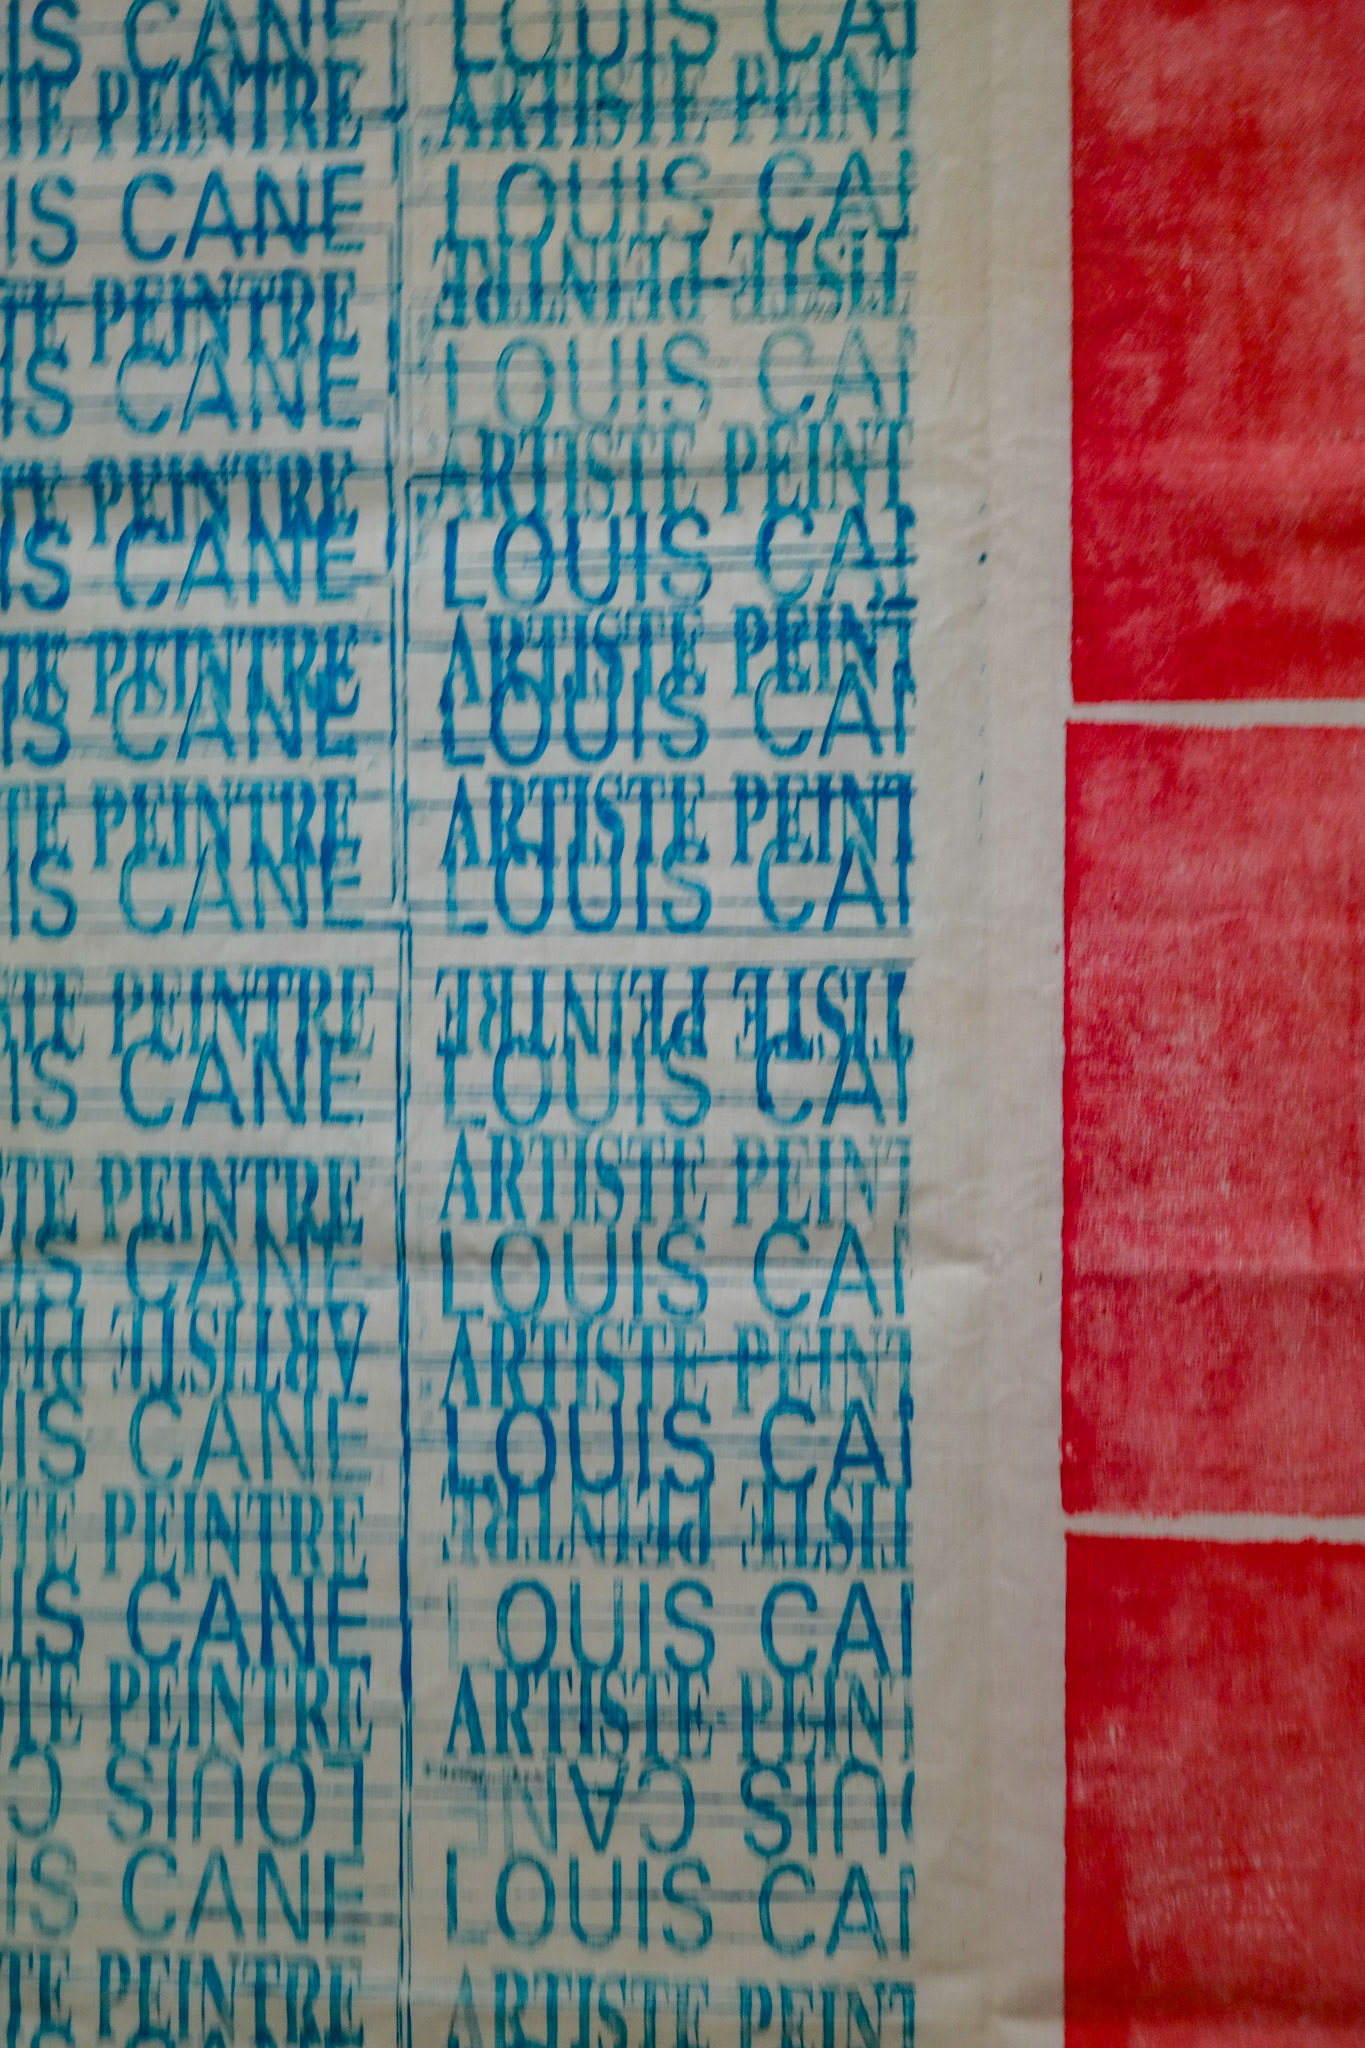 IS CANE
TE PEINTRE
IS CANE
TE PEINTRE
IS CANE
TE PEINTRE
IS CANE
TE PEINTRE
IS CANE
TE PEINTRE
IS CANE
STE PEINTRE
IS CANE
STE PEINTRE
IS CANE
ARTISTE PE
IS CANE
TE PEINTRE
IS CANE
TE PEINTRE
LOUIS C
IS CANE
TE PEINTRE
LOUIS CAN
ARTISTE PEINT
LOUIS CAN
TISTE PEINTRE
LOUIS CAN
ARTISTE PEINT
LOUIS CAN
ARTISTE PEINT
LOUIS CAN
ARTISTE PEINT
LOUIS CAN
TISTE PEINTRE
LOUIS CAN
ARTISTE PEINT
LOUIS CAN
ARTISTE PEINT
LOUIS CAN
TISTE PEINTRE
LOUIS CAN
ARTISTE PEINT
OUIS CANE
LOUIS CAN
ARTISTE PEINT